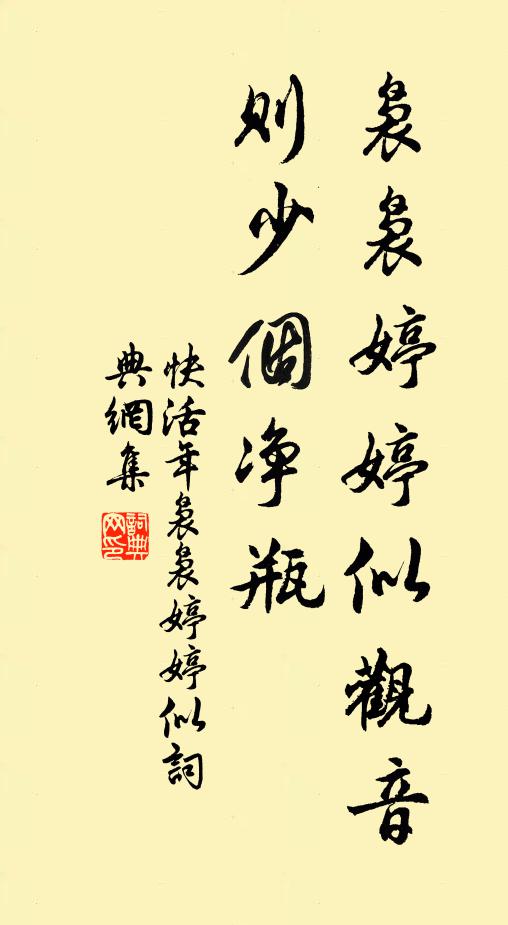 裊裊婷婷似觀音
則少個净瓶
快活年裊裊婷婷似詞
典網集
詞典
网印